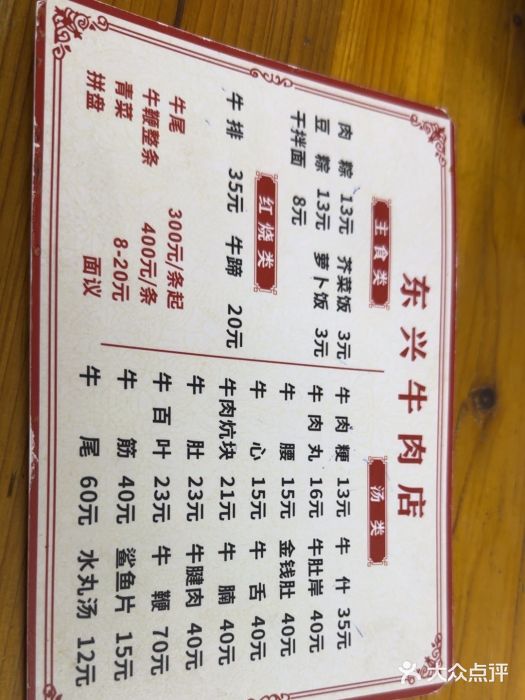 东兴牛肉店
主食类
肉粽 13元 芥菜饭 3元
豆粽 13元 萝卜饭 3元
干拌面 8元
红烧类
牛排 35元 牛蹄 20元
牛尾 300元/条起
牛鞭整条 400元/条
青菜 8-20元
拼盘 面议
汤类
牛肉粳 13元 牛什 35元
牛肉丸 16元 牛肚岸 40元
牛腰 15元 金钱肚 40元
牛心 15元 牛舌 40元
牛肉炕块 21元 牛腩 40元
牛肚 23元 牛腱肉 40元
牛百叶 23元 牛鞭 70元
牛筋 40元 鲨鱼片 15元
牛尾 60元 水丸汤 12元
大众点评